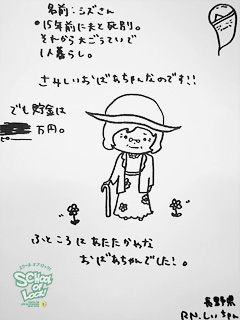 名前：シズさん
・15年前に夫と死別。
それから大ごうていで
1人暮らし。
さみしいおばあちゃんなのです!!
でも貯金は
万円。
ピー
ふところはあたたかかな
おばあちゃんでした!。
SCHOOL
OF
LOCK!
長野県
RN.しぃちゃん